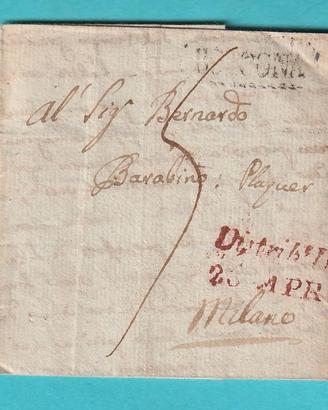 BOLOGNA
Al Sig Bernardo
Barabino: Plaquer
Distrib.
23 APR
Milano